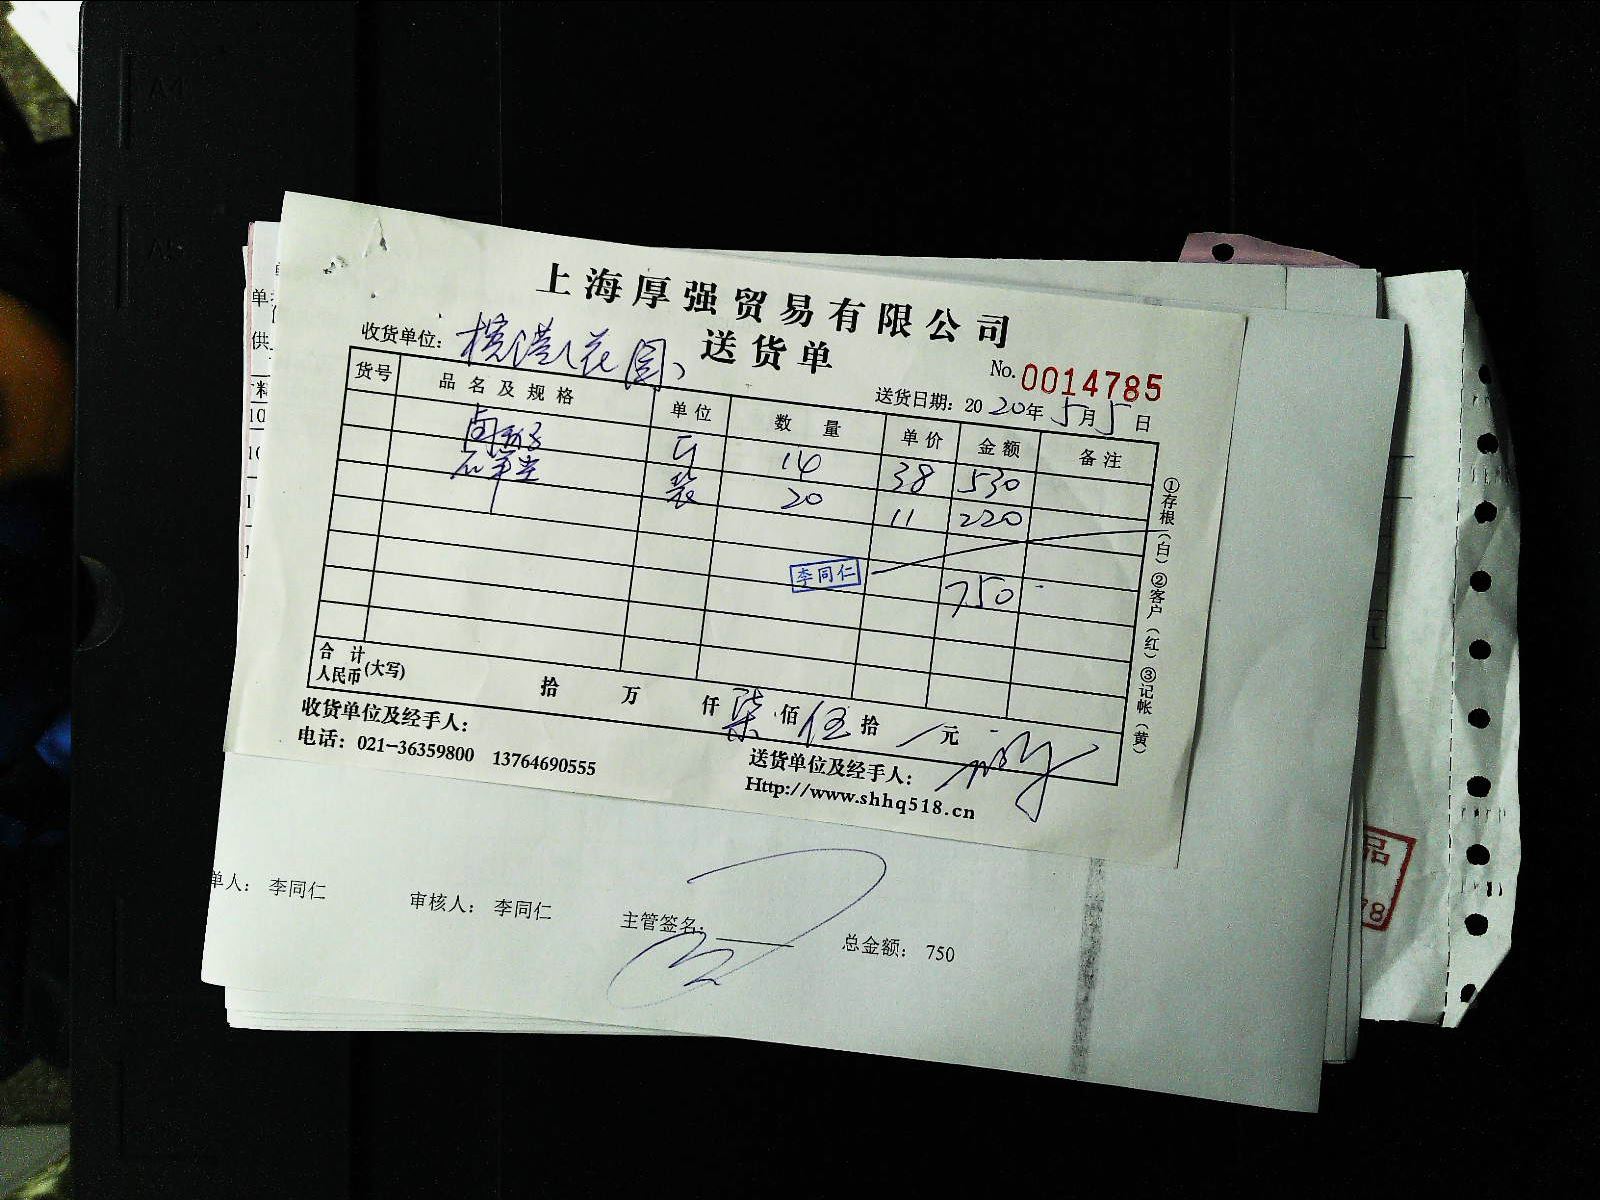 上海厚强贸易有限公司
送货单
收货单位: 横港花园
No. 0014785
送货日期: 2020年5月5日
货号 品名及规格 单位 数量 单价 金额 备注
14 38 530
袋 20 11 220
李同仁
750
合计人民币(大写) 拾 万 仟 柒 佰 伍 拾 元
收货单位及经手人:
送货单位及经手人:
电话: 021-36359800 13764690555
Http://www.shhq518.cn
①存根(白) ②客户(红) ③记帐(黄)
单人: 李同仁 审核人: 李同仁 主管签名: 总金额: 750
A4
A5
单
供
10
品
78